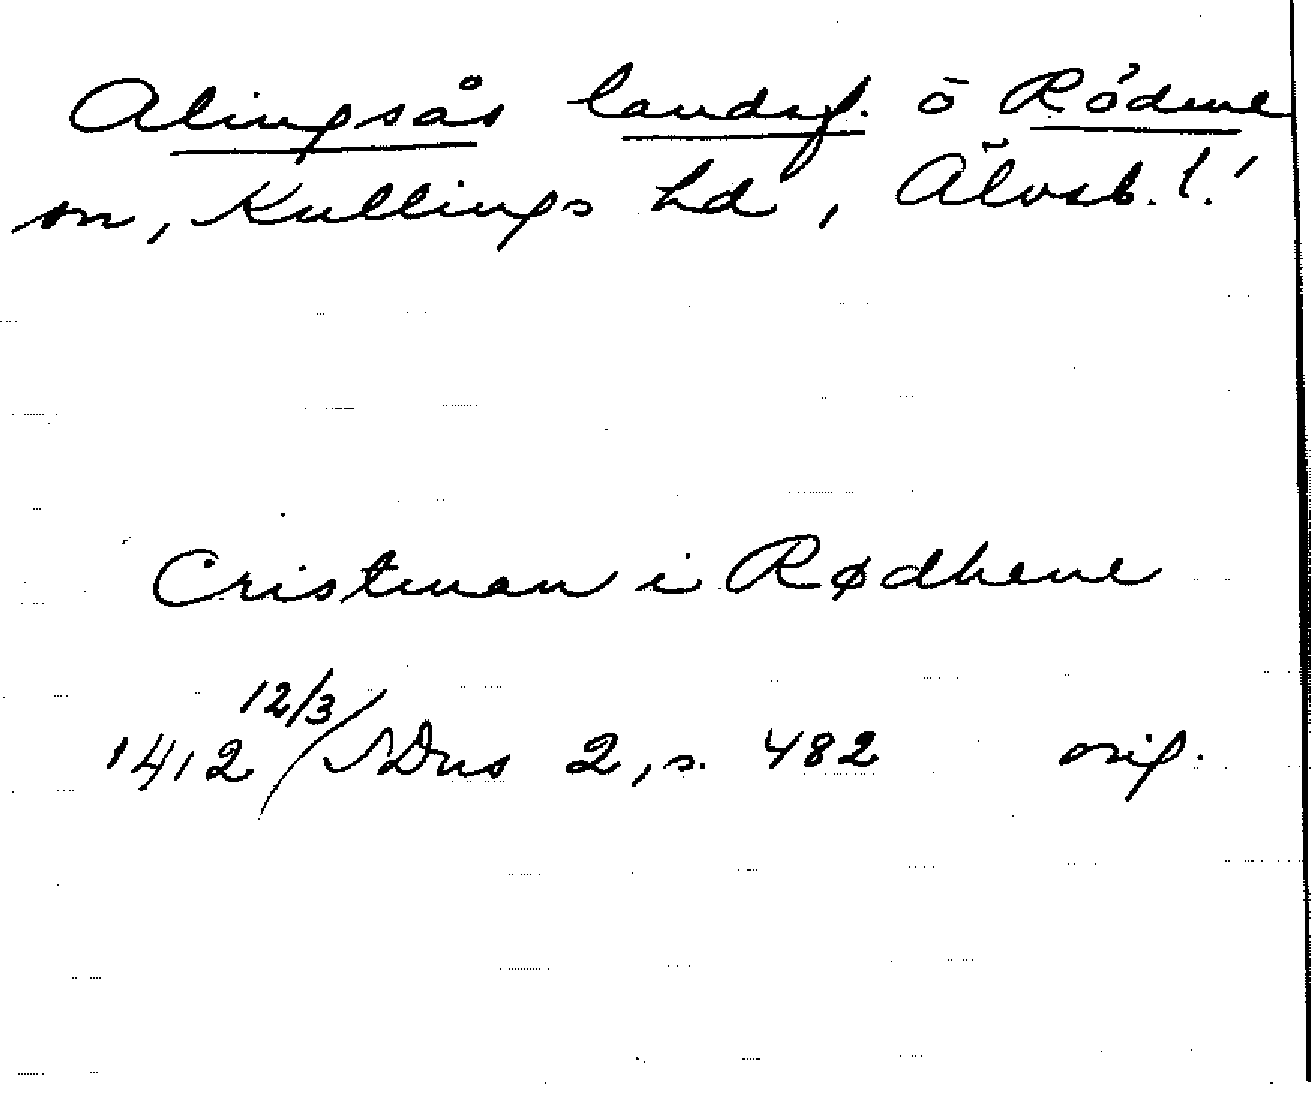 Alingsås landsf. o Rödene
sn, Kullings hd, Älvsb. l.
Cristman i Rødhene
1412 12/3 SDns 2, s. 482 orig.